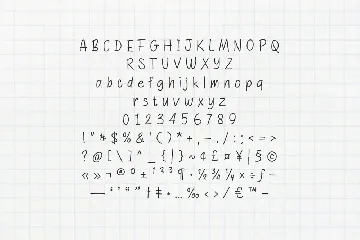 A B C D E F G H I J K L M N O P Q
R S T U V W X Y Z
a b c d e f g h i j k l m n o p q
r s t u v w x y z
0 1 2 3 4 5 6 7 8 9
! " # $ % & ' ( ) * + , - . / : ; < = >
? @ [ \ ] ^ _ { | } ~ ¢ £ ¤ ¥ ¦ § ©
« » ¬ ® ° ± ¹ ² ³ ¶ · ½ ¾ ¼ × ÷ ƒ –
— ‘ ’ “ ” † ‡ • … ‰ ‹ › / € ™ −